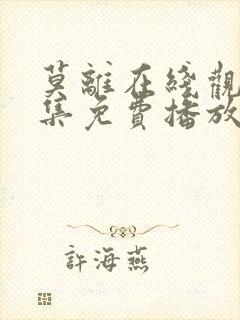 莫離在綫觀
集免費播放
許海燕